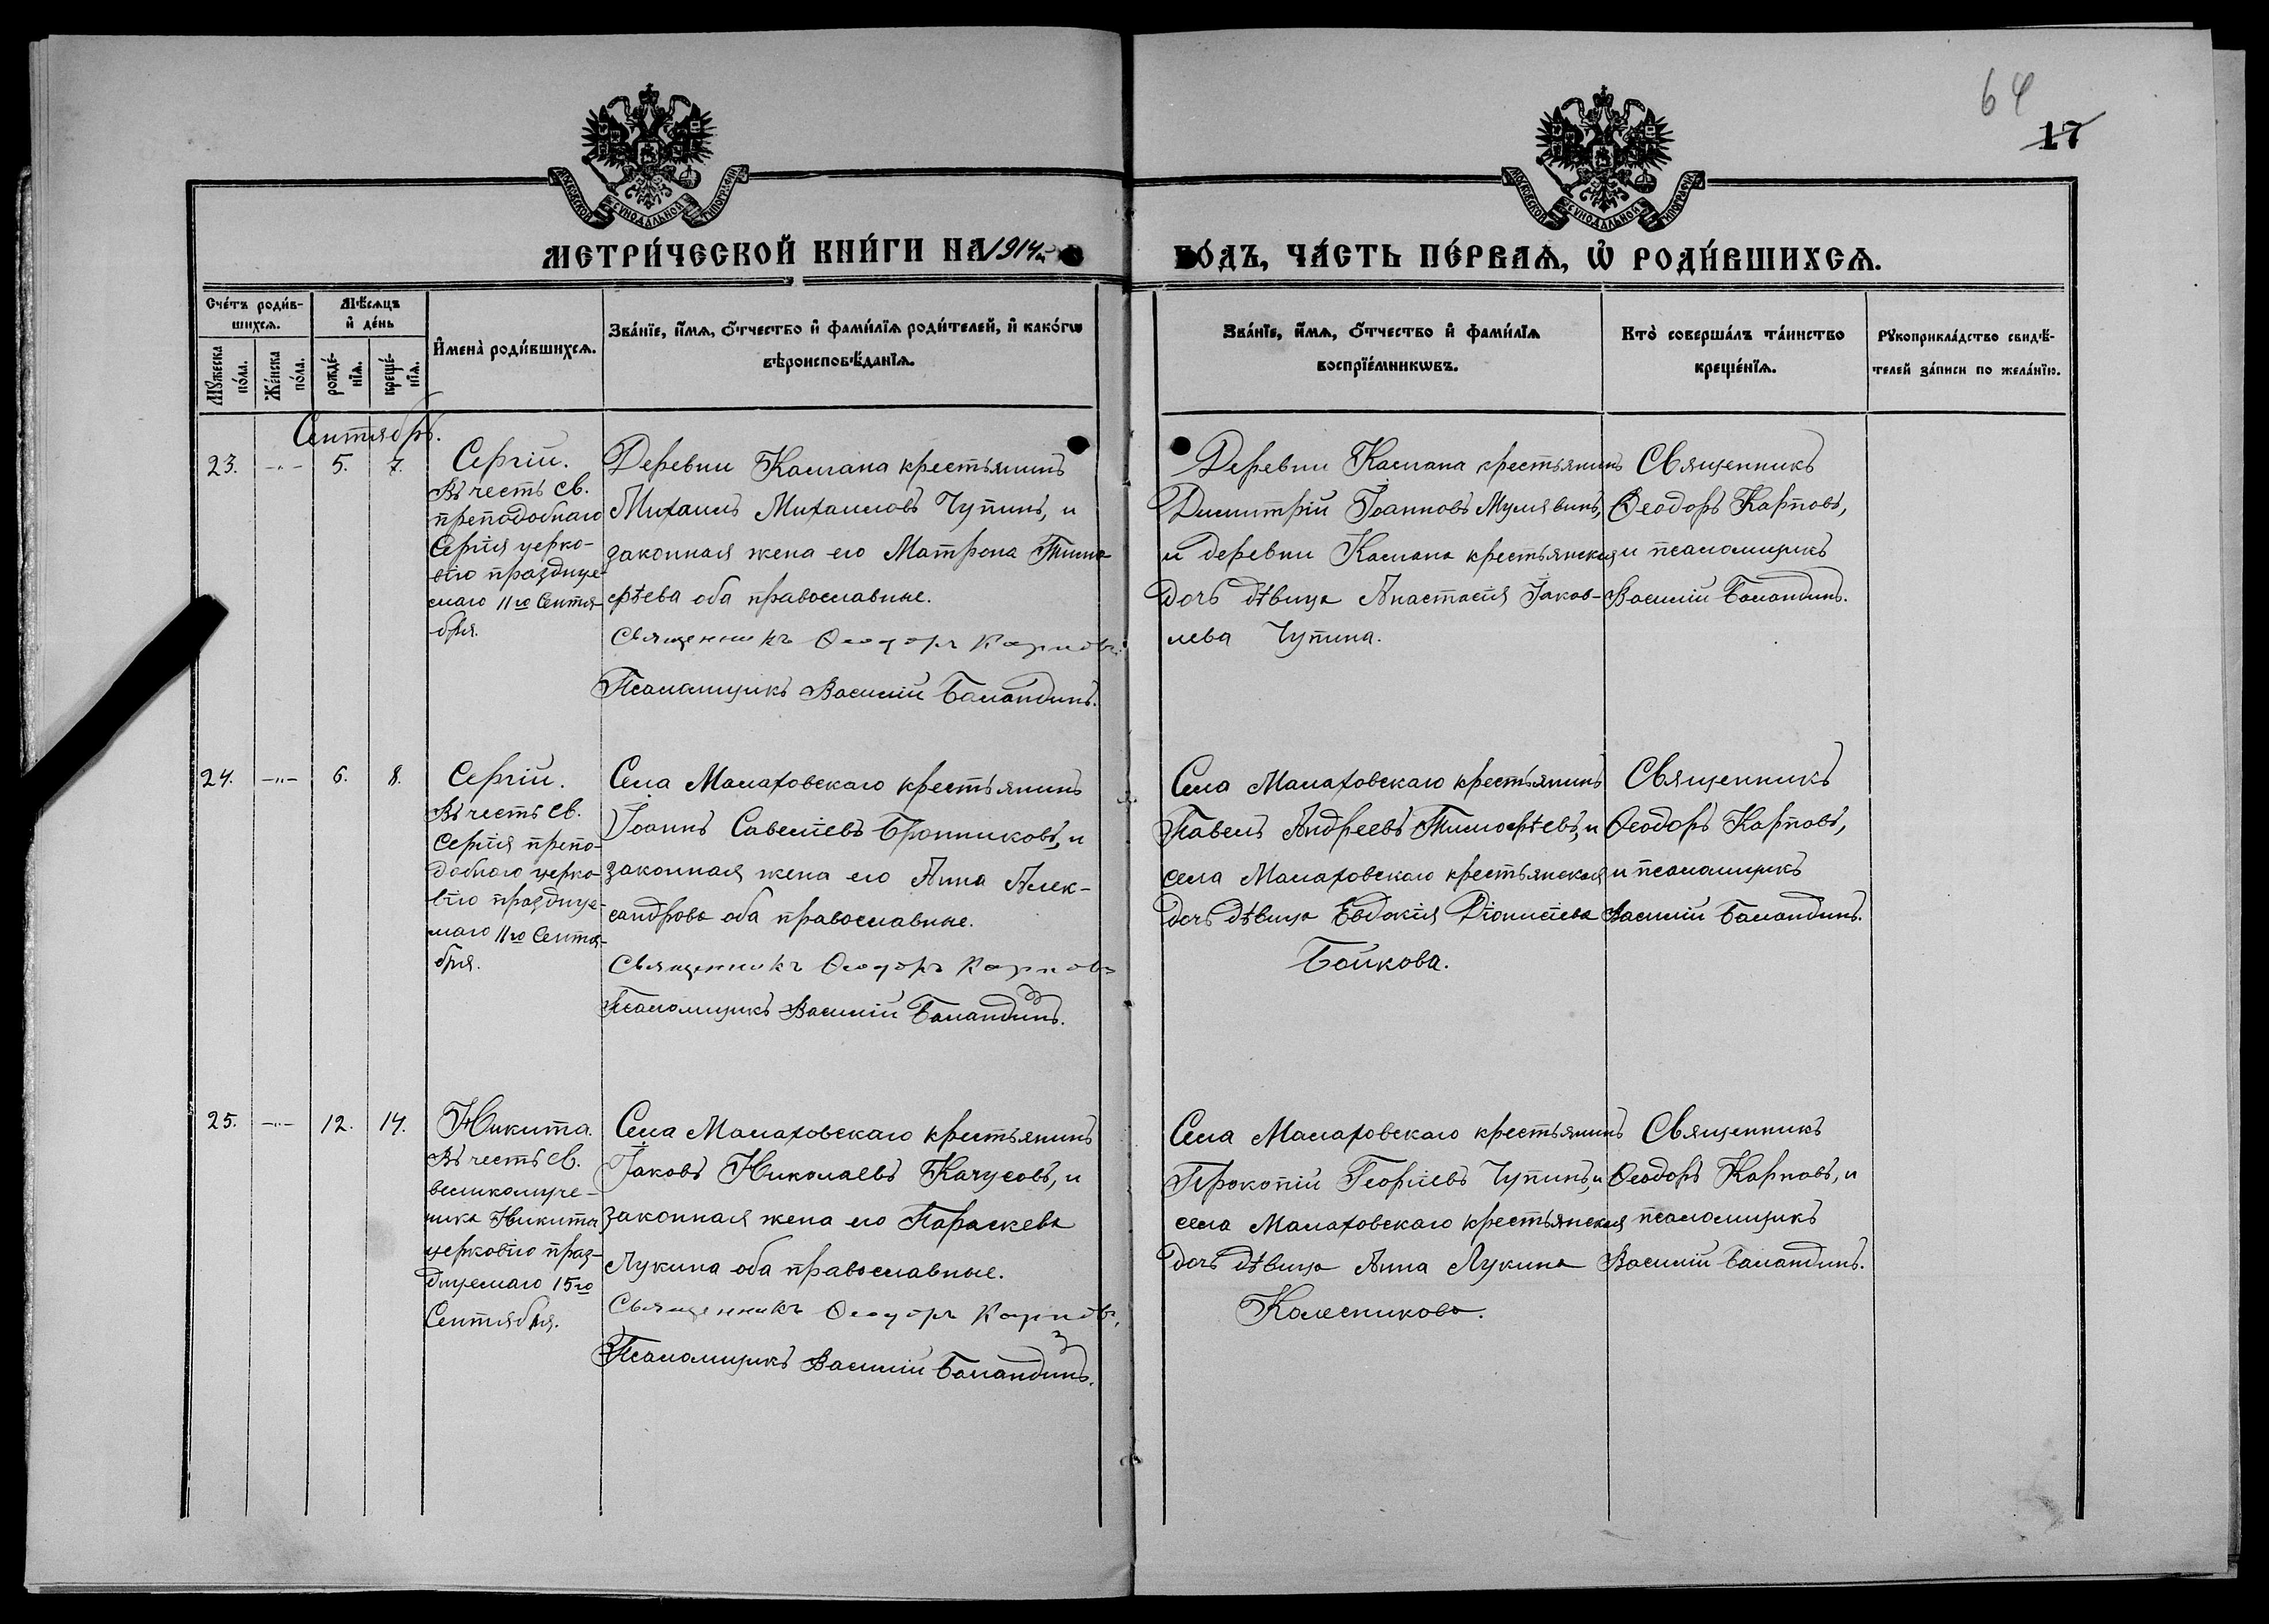 64
17
МОСКОВСКОЙ СѴНОДАЛЬНОЙ ТИПОГРАФІИ
МОСКОВСКОЙ СѴНОДАЛЬНОЙ ТИПОГРАФІИ
МЕТРИ́ЧЕСКОЙ КНИ́ГИ НА 1914й
ГО́ДЪ, ЧА́СТЬ ПЕ́РВАѦ, Ѡ҆ РОДИ́ВШИХСѦ.
Сче́тъ роди́в-
шихсѧ.
Мѣ́сѧцъ
и҆ де́нь
Мꙋ́жеска по́ла.
Же́нска по́ла.
рожде́-
нїѧ.
креще́-
нїѧ.
И҆мена̀ роди́вшихсѧ.
Зва́нїе, и҆́мѧ, ѻ҆́тчество и҆ фами́лїѧ роди́телей, и҆ како́гѡ
вѣроисповѣ́данїѧ.
Зва́нїе, и҆́мѧ, ѻ҆́тчество и҆ фами́лїѧ
воспрїе́мникѡвъ.
Кто̀ соверша́лъ та́инство
креще́нїѧ.
Рꙋкоприкла́дство свидѣ́-
телей за́писи по жела́нїю.
Сентябрь.
23. -"- 5. 7.
Сергій.
Въ честь св.
преподобнаго
Сергія церко-
вію праздnуе-
маго 11го Сентя-
бря.
Деревни Калгана крестьянинъ
Михаилъ Михаиловъ Чупинъ, и
законная жена его Матрона Тимо-
ѳѣева оба православные.
Священникъ Ѳеодоръ Карповъ
Псаломщикъ Василій Баландинъ.
Деревни Калгана крестьянинъ
Димитрій Іоанновъ Мулявинъ,
и деревни Калгана крестьянская
дочь дѣвица Анастасія Іаков-
лева Чупина.
Священникъ
Ѳеодоръ Карповъ,
и псаломщикъ
Василій Баландинъ.
24. -"- 6. 8.
Сергій.
Въ честь св.
Сергія препо-
добнаго церко-
вію праздnуе-
маго 11го Сентя-
бря.
Села Малаховскаго крестьянинъ
Іоаннъ Савеліевъ Бронниковъ, и
законная жена его Анна Алек-
сандрова оба православные.
Священникъ Ѳеодоръ Карповъ
Псаломщикъ Василій Баландинъ.
Села Малаховскаго крестьянинъ
Павелъ Андреевъ Тимоѳѣевъ, и
села Малаховскаго крестьянская
дочь дѣвица Евдокія Діонисіева
Бойкова.
Священникъ
Ѳеодоръ Карповъ,
и псаломщикъ
Василій Баландинъ.
25. -"- 12. 14.
Никита.
Въ честь св.
великомуче-
ника Никиты
церковію праз-
днуемаго 15го
Сентября.
Села Малаховскаго крестьянинъ
Іаковъ Николаевъ Качусовъ, и
законная жена его Параскева
Лукина оба православные.
Священникъ Ѳеодоръ Карповъ,
Псаломщикъ Василій Баландинъ.
Села Малаховскаго крестьянинъ
Прокопій Георгіевъ Чупинъ, и
села Малаховскаго крестьянская
дочь дѣвица Анна Лукина
Колесникова.
Священникъ
Ѳеодоръ Карповъ, и
псаломщикъ
Василій Баландинъ.